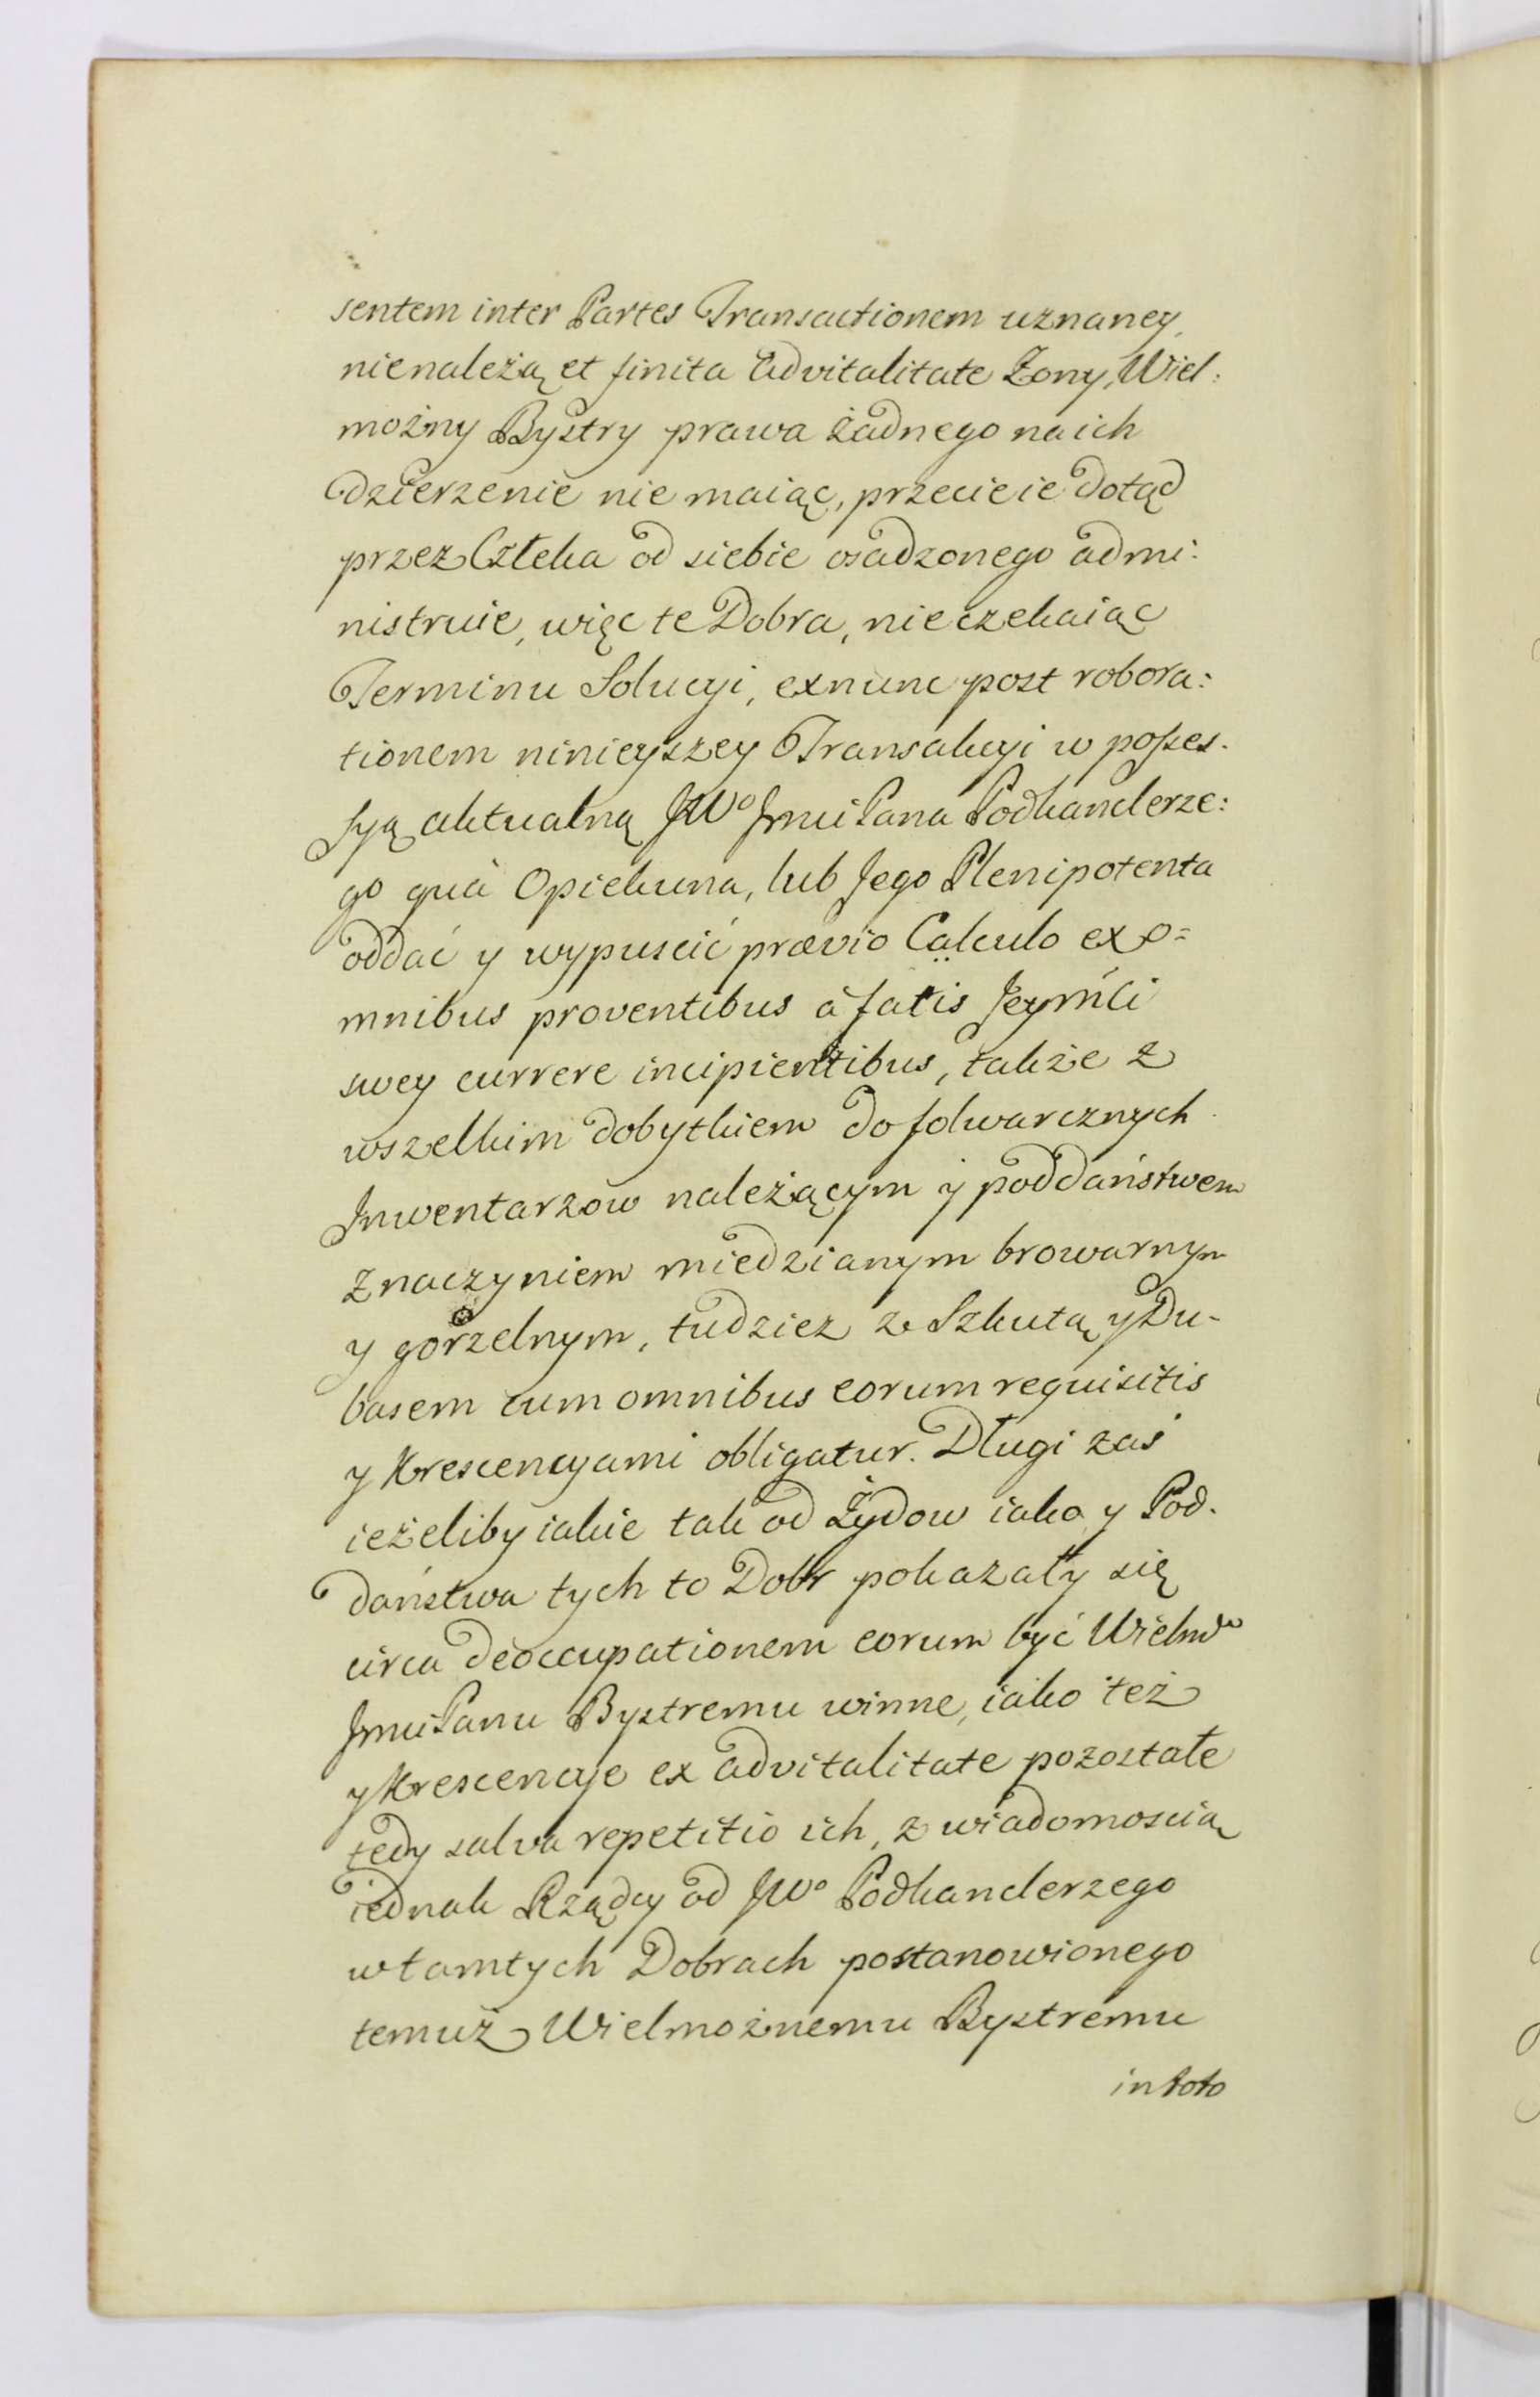 sentem inter Partes Transactionem uznaney,
nienależą et finita Advitalitate Zony, Wiel:
możny Bystry prawa żadnego na ich
dzierzenie nie maiąc, przecie ie dotąd
przez Człeka od siebie osadzonego admi:
nistruie, więc te Dobra, nieczekaiąc
Terminu Solucyi, exnunc post robora:
tionem ninieyszey Transakcyi w posses-
syą aktualną JWo Jmci Pana Podkanclerze:
go quà Opiekuna, lub Jego Plenipotenta
oddać y wypuscić prævio Calculo ex o=
mnibus proventibus à fatis Jeymći
swey currere incipientibus, także z
wszelkim dobytkiem do folwarcznych
Inwentarzow należącym y poddaństwem
znaczyniem miedzianym browarnym
y gorzelnym, tudziez ze Szkutą y Du-
basem cum omnibus eorum requisitis
y Krescencyami obligatur. Długi zaś
ieżeliby iakie tak od Żydow iako y Pod-
daństwa tych to Dobr pokazały się
circa deoccupationem eorum być Wielmo
Jmci Panu Bystremu winne, iako też
y Krescencye ex advitalitate pozostałe
tedy salva repetitio ich, z wiadomoscią
iednak Rządcy od JWo Podkanclerzego
w tamtych Dobrach postanowionego
temuż Wielmożnemu Bystremu
in toto